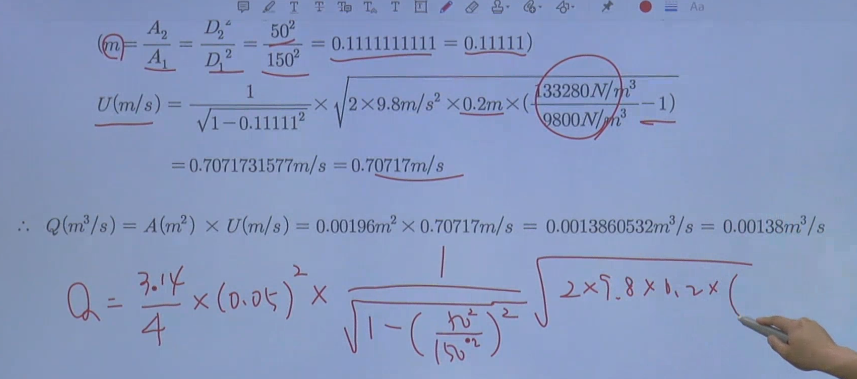 (m = A₂/A₁ = D₂²/D₁² = 50²/150² = 0.1111111111 = 0.11111)
U(m/s) = 1/√(1−0.11111²) × √(2×9.8m/s² ×0.2m×(133280N/m³/9800N/m³ −1))
=0.7071731577m/s = 0.70717m/s
∴ Q(m³/s) = A(m²) × U(m/s) = 0.00196m² × 0.70717m/s = 0.0013860532m³/s = 0.00138m³/s
Q = 3.14/4 × (0.05)² × 1/√(1−(50²/150²)²) √(2×9.8×0.2×(